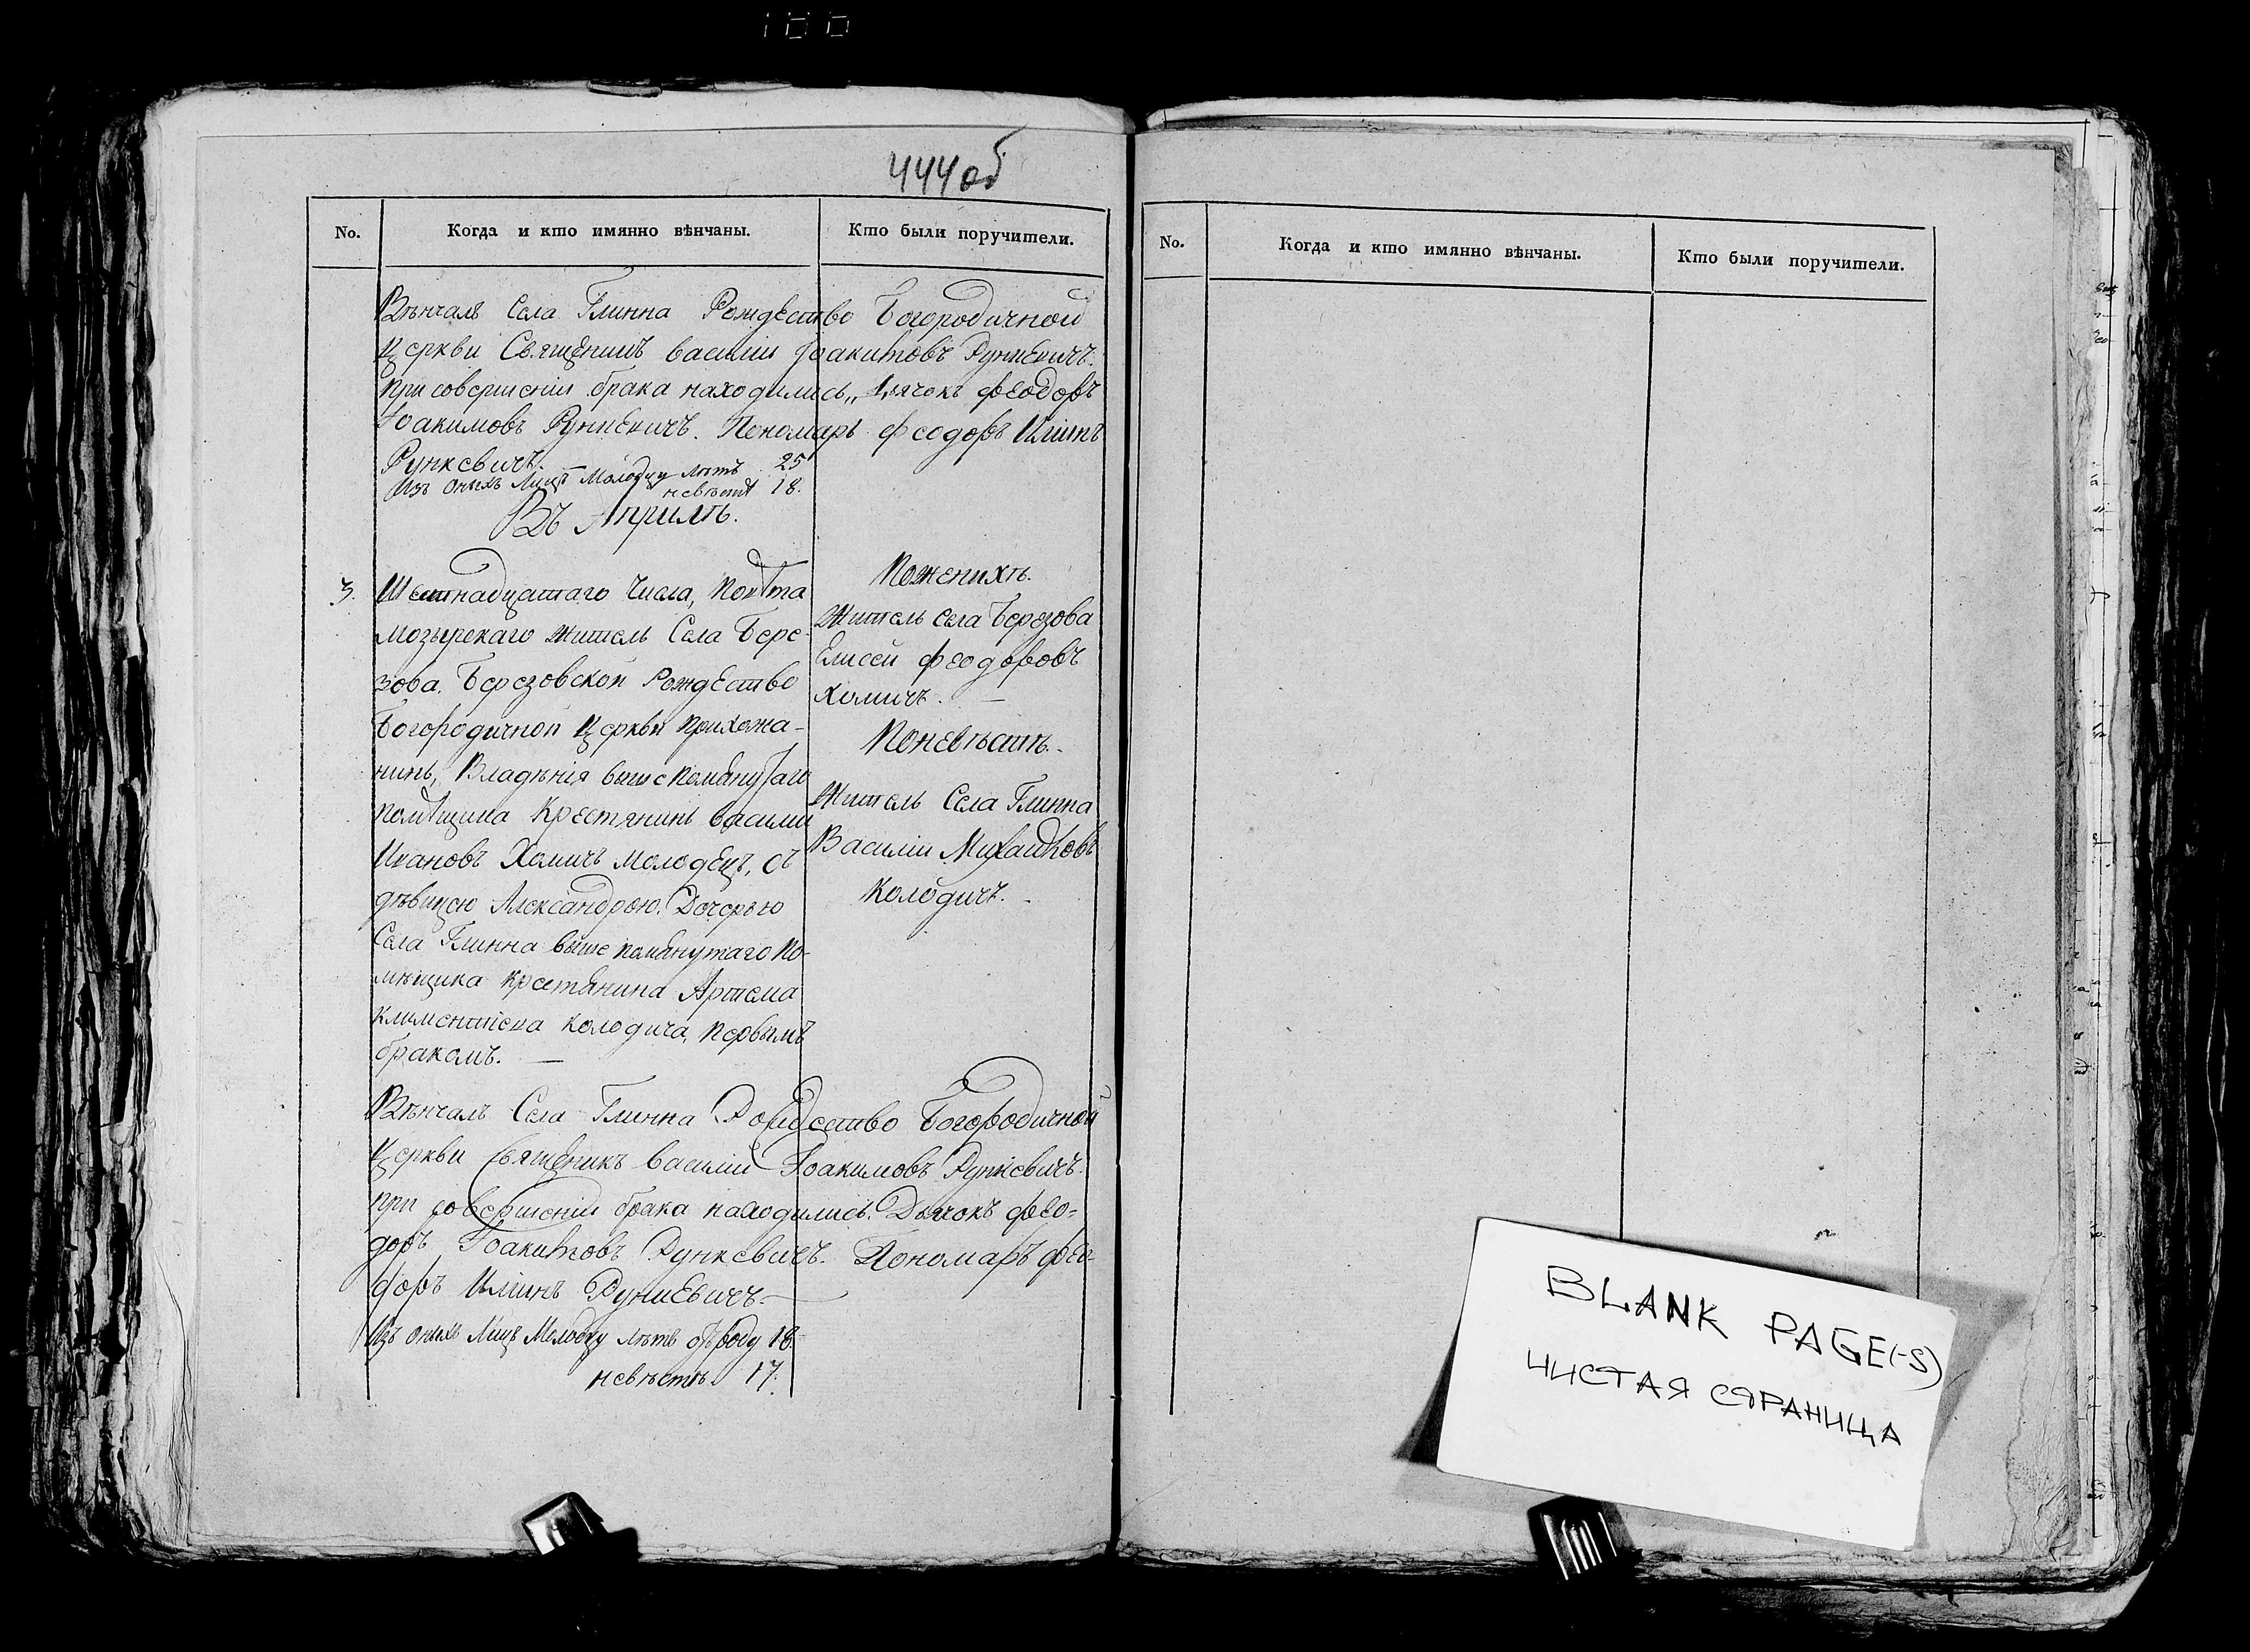 100
444 об
No. Когда и кто имянно вѣнчаны. Кто были поручители.
Вѣнчалъ Села Глинна Рождество Богородичной
Церкви Священикъ василій Іоакимовъ Рункевичъ.
при совершеніи брака находились,, Дячокъ феодоръ
Іоакимовъ Рункевичъ. Пономарь феодоръ Илiинъ
Рункевичъ.
Изъ оныхъ Лицъ Молодцу лѣтъ 25
невѣстѣ 18.
Въ Априлѣ.
3. Шестнадцатаго Числа, Повѣта
мозырскаго житель Села Бере-
зова. Березовской Рождество
Богородичной Церкви прихожа-
нинъ, Владѣнія вышепомянутаго
помѣщика Крестянинъ василий
Ивановъ Хомичъ молодецъ, съ
дѣвицею Александрою. Дочерью
Села Глинна вышепомянутаго По-
мѣщика крестянина Артема
климентіева колодича, первымъ
бракомъ. —
Поженихѣ.
Житель села Березова
Елисей феодоровъ
хомичъ. —
Поневѣстѣ.
Житель Села Глинна
Василій Михайловъ
колодичъ.
Вѣнчалъ Села Глинна Рождество Богородичной
Церкви Священикъ василій Іоакимовъ Рункевичъ.
при совершеніи брака находились. Дьячокъ фео=
доръ Іоакимовъ Рункевичъ. Пономаръ фео-
доръ Илiинъ Рункевичъ. —
Изъ оныхъ Лицъ Молодцу лѣтъ отроду 18.
невѣстѣ. 17.
No. Когда и кто имянно вѣнчаны. Кто были поручители.
BLANK PAGE(-S)
ЧИСТАЯ СТРАНИЦА